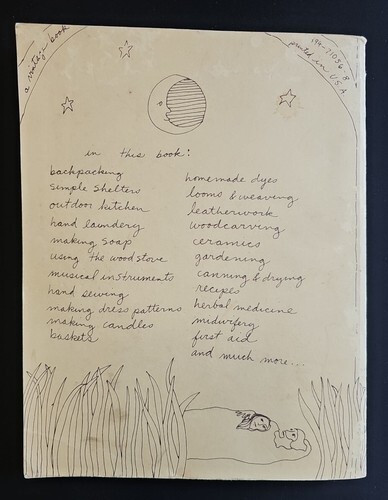 a vintage book
394-71056-8
printed in USA
in this book:
backpacking
simple shelters
outdoor kitchen
hand laundery
making soap
using the woodstove
musical instruments
hand sewing
making dress patterns
making candles
baskets
homemade dyes
looms & weaving
leatherwork
woodcarving
ceramics
gardening
canning & drying
recipes
herbal medicine
midwifery
first aid
and much more...